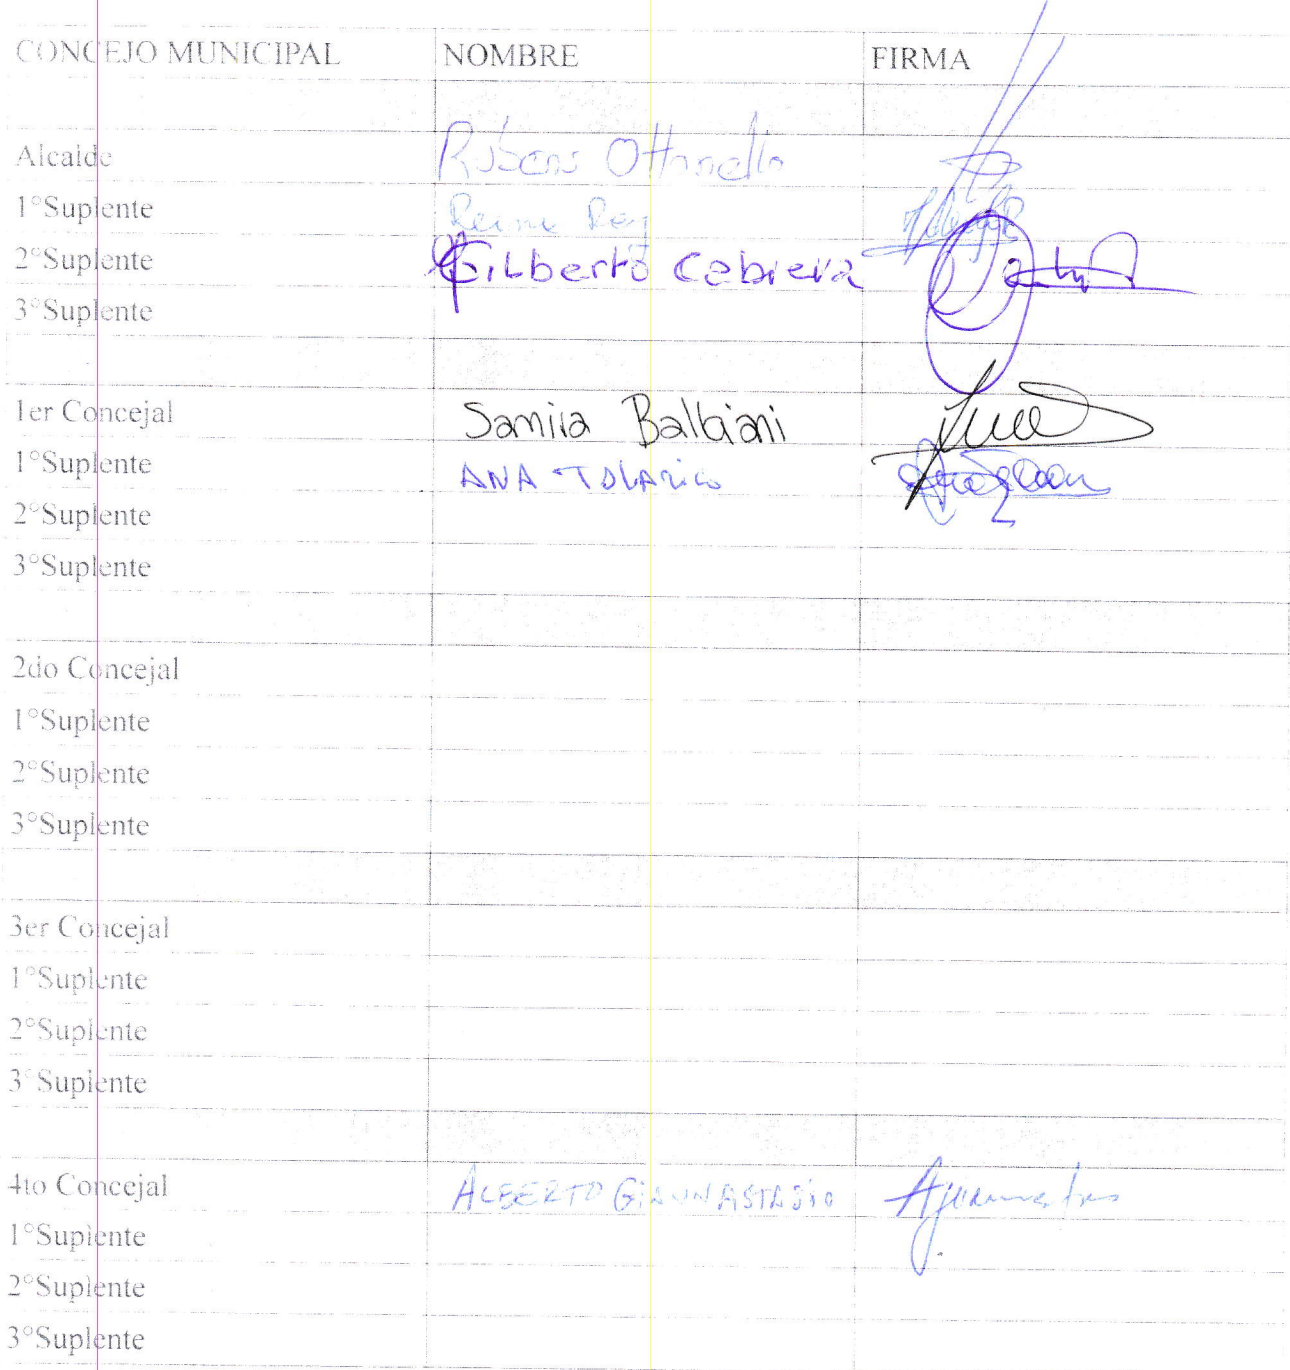 CONCEJO MUNICIPAL NOMBRE FIRMA
Alcalde Rubens Ottonello
1°Suplente Rey
2°Suplente Gilberto Cabrera
3°Suplente
1er Concejal Samira Balbiani
1°Suplente ANA TOLARICO
2°Suplente
3°Suplente
2do Concejal
1°Suplente
2°Suplente
3°Suplente
3er Concejal
1°Suplente
2°Suplente
3°Suplente
4to Concejal ALBERTO GIANNASTASIO
1°Suplente
2°Suplente
3°Suplente